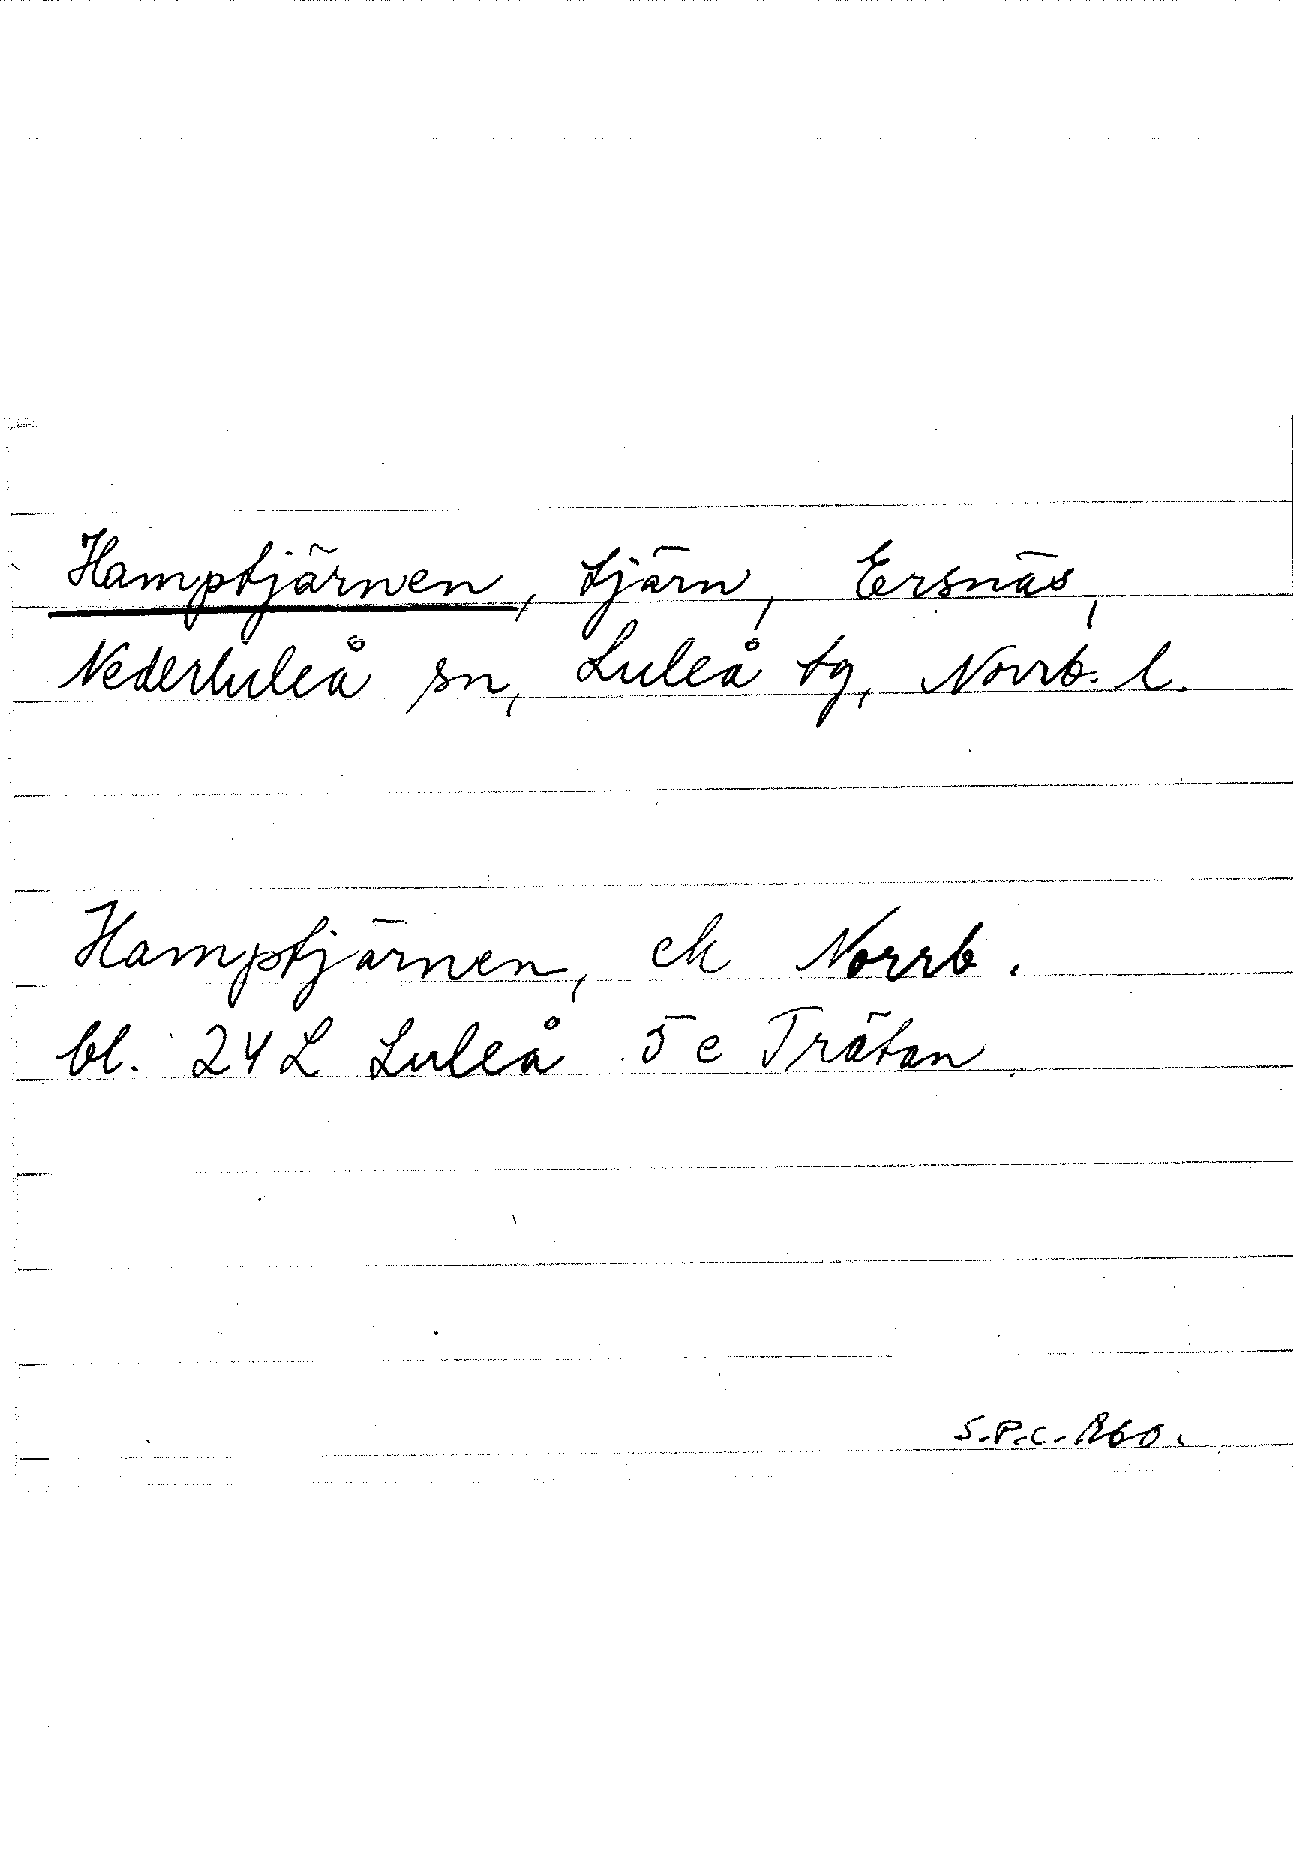 Hamptjärnen, tjärn, Ersnäs,
Nederluleå sn, Luleå tg, Norrb. l.
Hamptjärnen, ek Norrb.
bl. 24 L Luleå 5 e Trätan
S.P.C. R60.